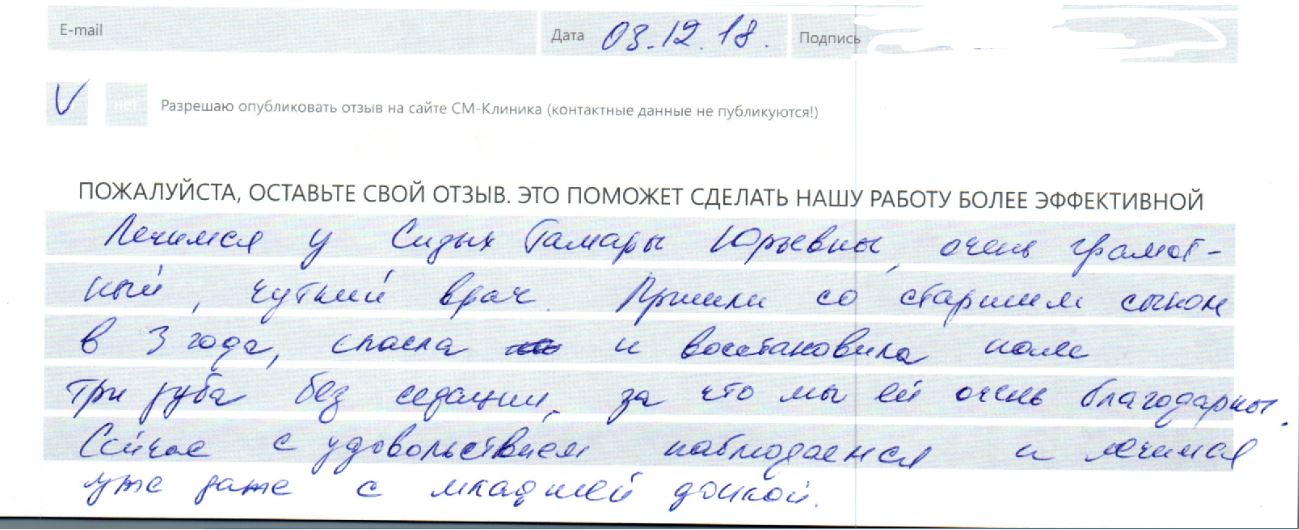 E-mail Дата 03.12.18. Подпись
нет Разрешаю опубликовать отзыв на сайте СМ-Клиника (контактные данные не публикуются!)
ПОЖАЛУЙСТА, ОСТАВЬТЕ СВОЙ ОТЗЫВ. ЭТО ПОМОЖЕТ СДЕЛАТЬ НАШУ РАБОТУ БОЛЕЕ ЭФФЕКТИВНОЙ
Лечимся у Сизых Тамары Юрьевны, очень грамот-
ный, чуткий врач. Пришли со старшим сыном
в 3 года, спасла и восстановила нам
три зуба без седации, за что мы ей очень благодарны.
Сейчас с удовольствием наблюдаемся и лечимся
уже даже с младшей дочкой.